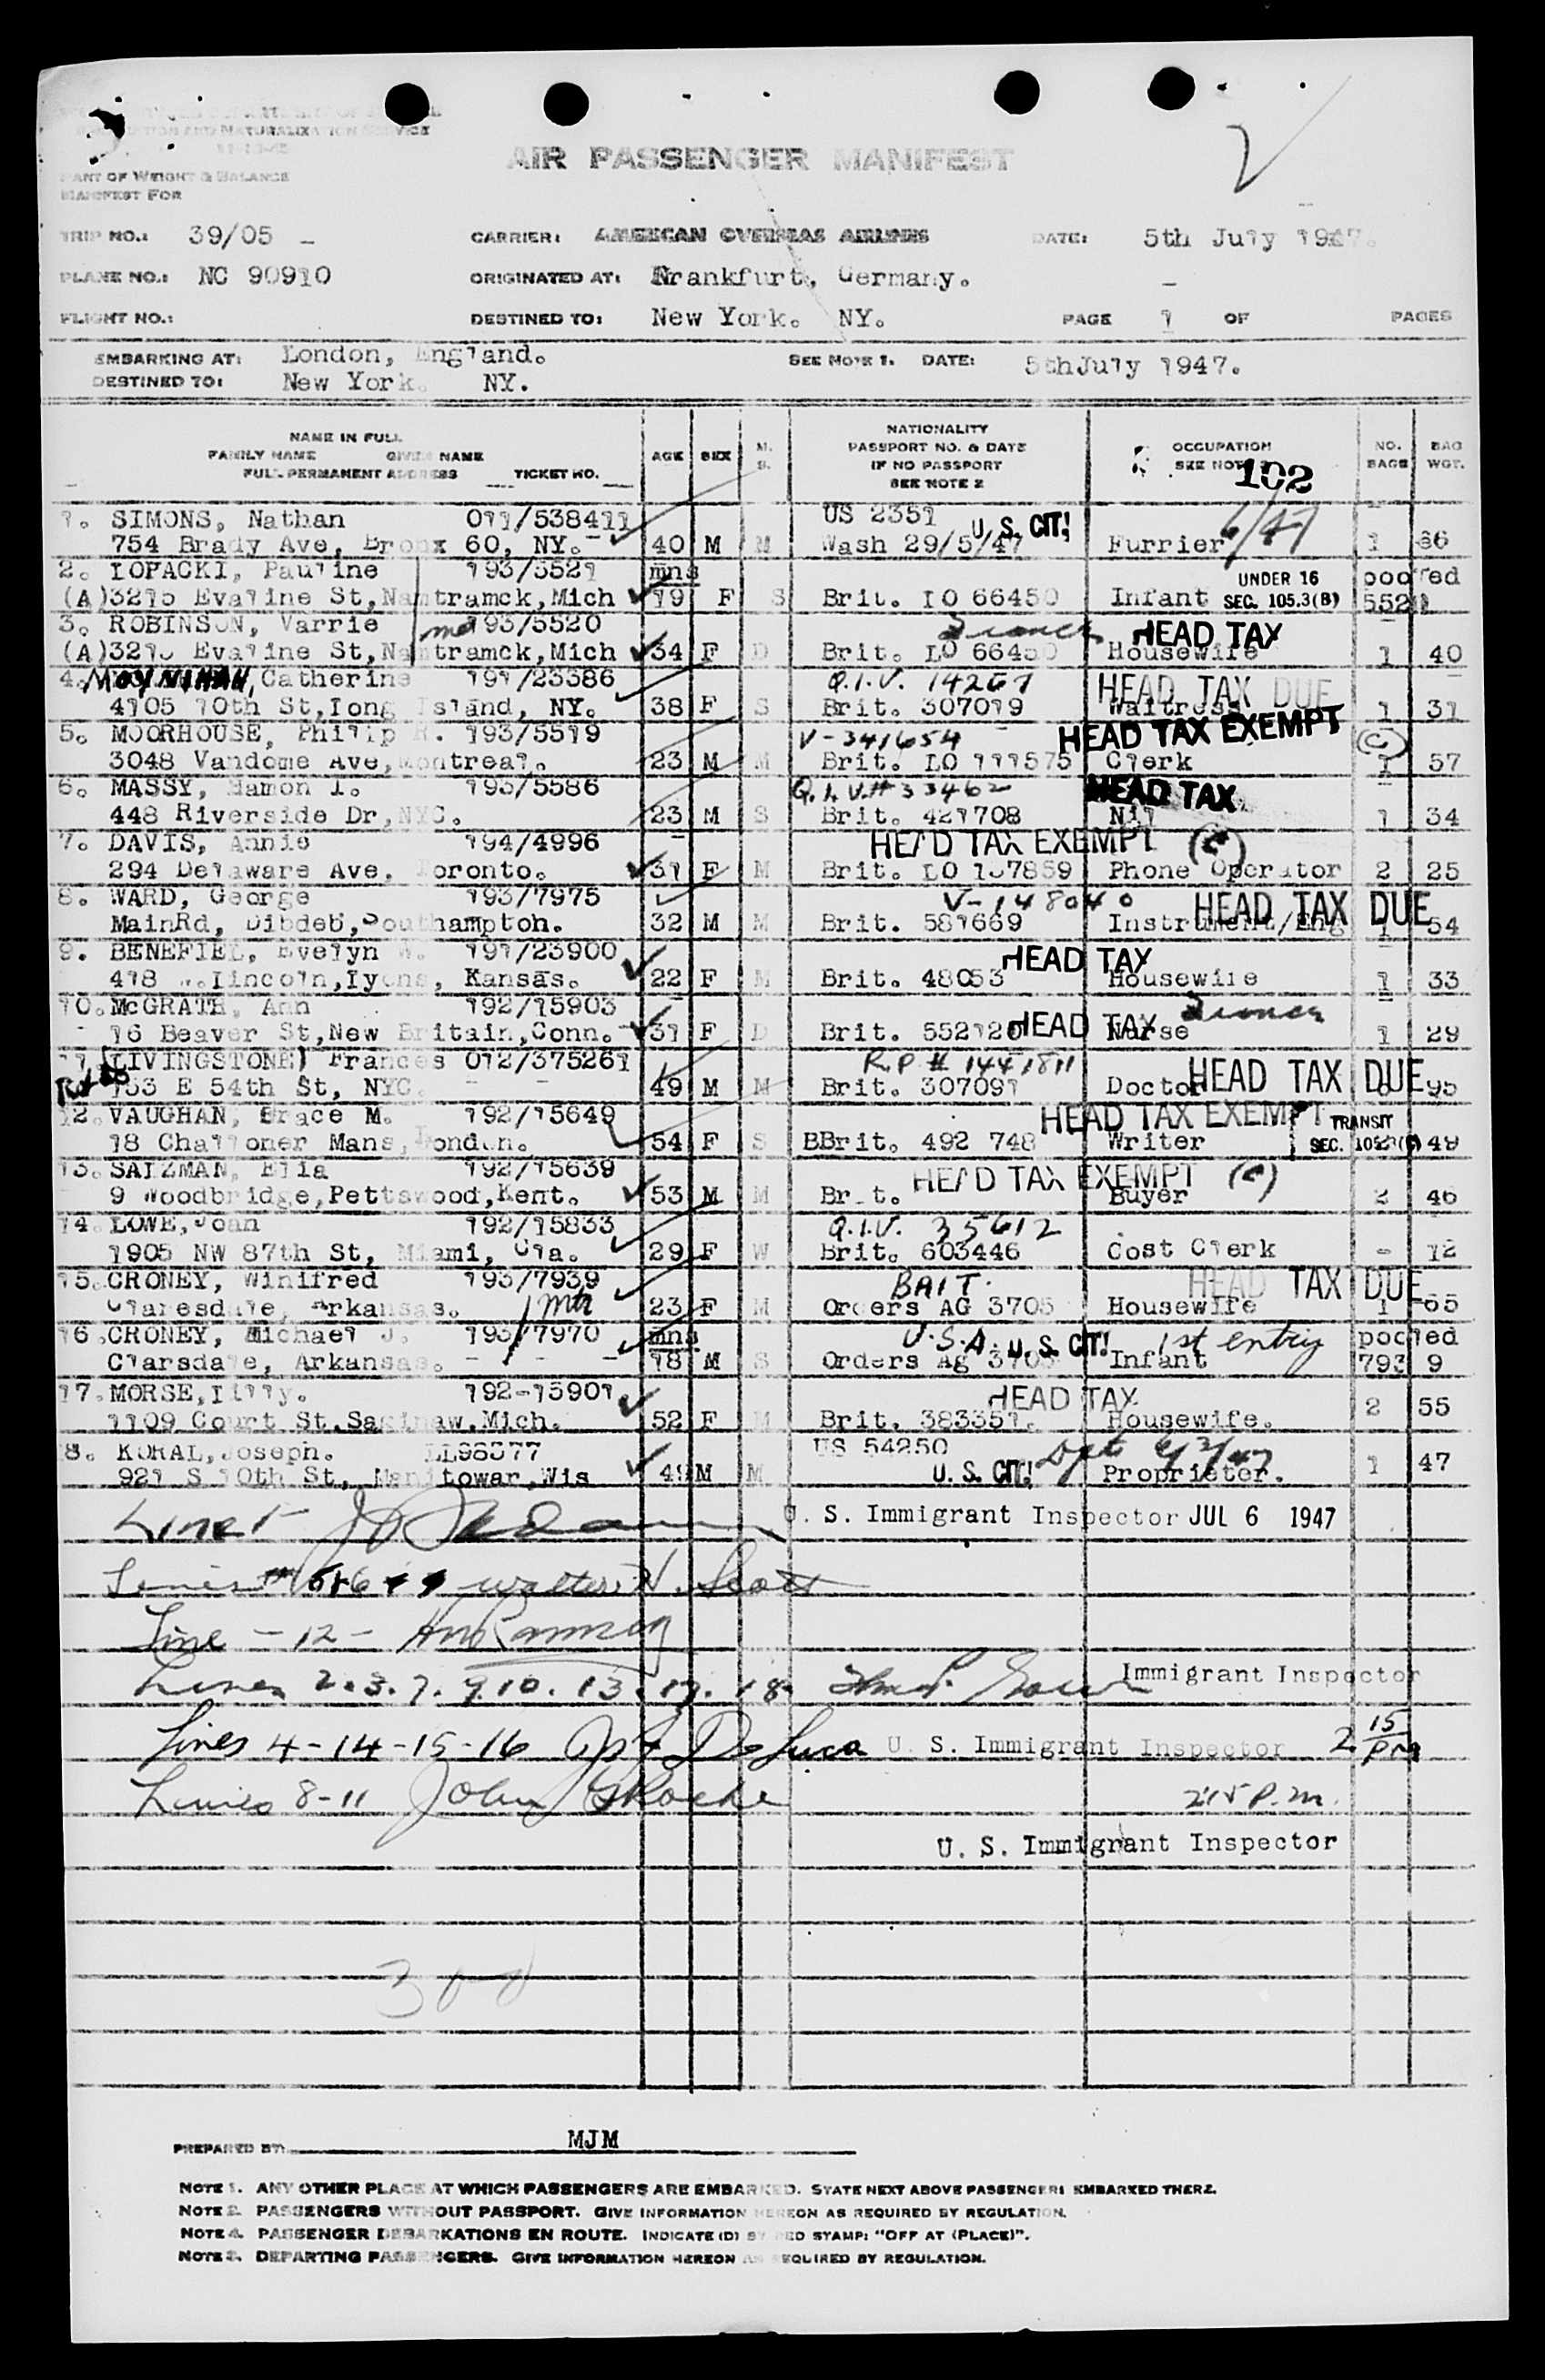 AND NATURALIZATION SERVICE
PART OF WEIGHT & BALANCE
MANIFEST FOR
AIR PASSENGER MANIFEST
TRIP NO.: 39/05 -
CARRIER: AMERICAN OVERSEAS AIRLINES
DATE: 5th July 1947.
PLANE NO.: NC 90910
ORIGINATED AT: Frankfurt, Germany.
FLIGHT NO.:
DESTINED TO: New York. NY.
PAGE 1 OF PAGES
EMBARKING AT: London, England.
SEE NOTE 1. DATE: 5thJuly 1947.
DESTINED TO: New York. NY.
NAME IN FULL
FAMILY NAME GIVEN NAME
FULL PERMANENT ADDRESS TICKET NO.
AGE SEX M. S.
NATIONALITY
PASSPORT NO. & DATE
IF NO PASSPORT
SEE NOTE 2
OCCUPATION
SEE NOTE
102
NO. BAGS
BAG WGT.
1. SIMONS, Nathan 011/538411 US 2351 U. S. CIT!
754 Brady Ave, Bronx 60, NY. 40 M M Wash 29/5/47 Furrier 6/47 1 66
2. LOPACKI, Pauline 193/5521 mns UNDER 16 pooled
(A)3215 Evaline St, Namtramck, Mich 19 F S Brit. LO 66450 Infant SEC. 105.3(B) 5520
3. ROBINSON, Varrie 193/5520 HEAD TAX
(A)3215 Evaline St, Namtramck, Mich 34 F D Brit. LO 66450 Housewife 1 40
4. MOYNIHAN, Catherine 191/23386 Q.I.V. 14267 HEAD TAX DUE
4105 10th St, Long Island, NY. 38 F S Brit. 307019 Waitress 1 31
5. MOORHOUSE, Philip R. 193/5519 V-341654 HEAD TAX EXEMPT (C)
3048 Vandome Ave, Montreal. 23 M M Brit. LO 111575 Clerk 1 57
6. MASSY, Hamon L. 193/5586 Q.I.V.# 33462 HEAD TAX
448 Riverside Dr, NYC. 23 M S Brit. 421708 Nil 1 34
7. DAVIS, Annie 194/4996 HEAD TAX EXEMPT (C)
294 Delaware Ave, Toronto. 31 F M Brit. LO 157859 Phone Operator 2 25
8. WARD, George 193/7975 V-148040 HEAD TAX DUE
MainRd, Dibdeb, Southampton. 32 M M Brit. 581669 Instrument/Eng 1 54
9. BENEFIEL, Evelyn W. 191/23900 HEAD TAX
418 W. Lincoln, Lyons, Kansas. 22 F M Brit. 48053 Housewife 1 33
10. McGRATH, Ann 192/15903
16 Beaver St, New Britain, Conn. 31 F D Brit. 552120 HEAD TAX Nurse 1 29
11. (LIVINGSTONE) Frances 012/375261 R.P # 1441811 HEAD TAX DUE
153 E 54th St, NYC. 49 M M Brit. 307091 Doctor 95
12. VAUGHAN, Grace M. 192/15649 HEAD TAX EXEMPT TRANSIT
18 Challoner Mans, London. 54 F S BBrit. 492 748 Writer SEC. 49
13. SALZMAN, Ella 192/15639 HEAD TAX EXEMPT (C)
9 Woodbridge, Pettswood, Kent. 53 M M Brit. Buyer 2 46
14. LOWE, Joan 192/15833 Q.I.V. 35612
1905 NW 87th St, Miami, Fla. 29 F W Brit. 603446 Cost Clerk - 12
15. CRONEY, Winifred 193/7939 BRIT. HEAD TAX DUE
Claresdale, Arkansas. 23 F M Orders AG 3705 Housewife 1 65
16. CRONEY, Michael J. 193/7970 mns U.S.A. U. S. CIT! 1st entry pooled
Clarsdale, Arkansas. 18 M S Orders Ag 3705 Infant 793 9
17. MORSE, Lilly. 192-15901 HEAD TAX
1109 Court St. Saginaw, Mich. 52 F M Brit. 383351. Housewife. 2 55
18. KORAL, Joseph. LL98377 US 54250
921 S 10th St, Manitowar, Wis 49 M M U. S. CIT! Proprietor. 1 47
Line 1 U. S. Immigrant Inspector JUL 6 1947
Lines Walter H. Scott
Line - 12 -
Lines 2. 3. 7. 9. 10. 13. 17. 18 Immigrant Inspector
Lines 4-14-15-16 De Luca U. S. Immigrant Inspector 2 15 Pm
Lines 8-11 John Roche 215 P.m.
U. S. Immigrant Inspector
300
PREPARED BY: MJM
NOTE 1. ANY OTHER PLACE AT WHICH PASSENGERS ARE EMBARKED. STATE NEXT ABOVE PASSENGERS EMBARKED THERE.
NOTE 2. PASSENGERS WITHOUT PASSPORT. GIVE INFORMATION HEREON AS REQUIRED BY REGULATION.
NOTE 4. PASSENGER DEBARKATIONS EN ROUTE. INDICATE (D) BY RED STAMP: "OFF AT (PLACE)".
NOTE 3. DEPARTING PASSENGERS. GIVE INFORMATION HEREON AS REQUIRED BY REGULATION.